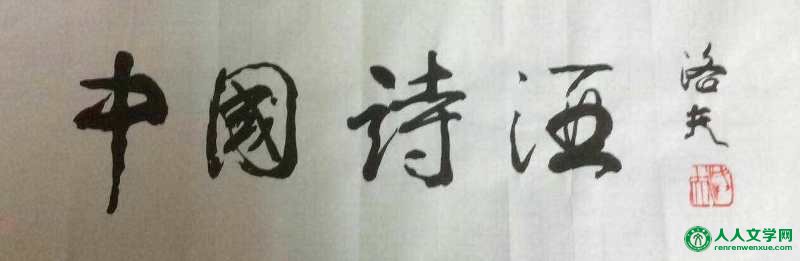 中國诗酒
洛夫
人人文学网
renrenwenxue.com